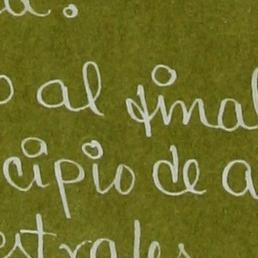 o al final
cipio de a
estrales